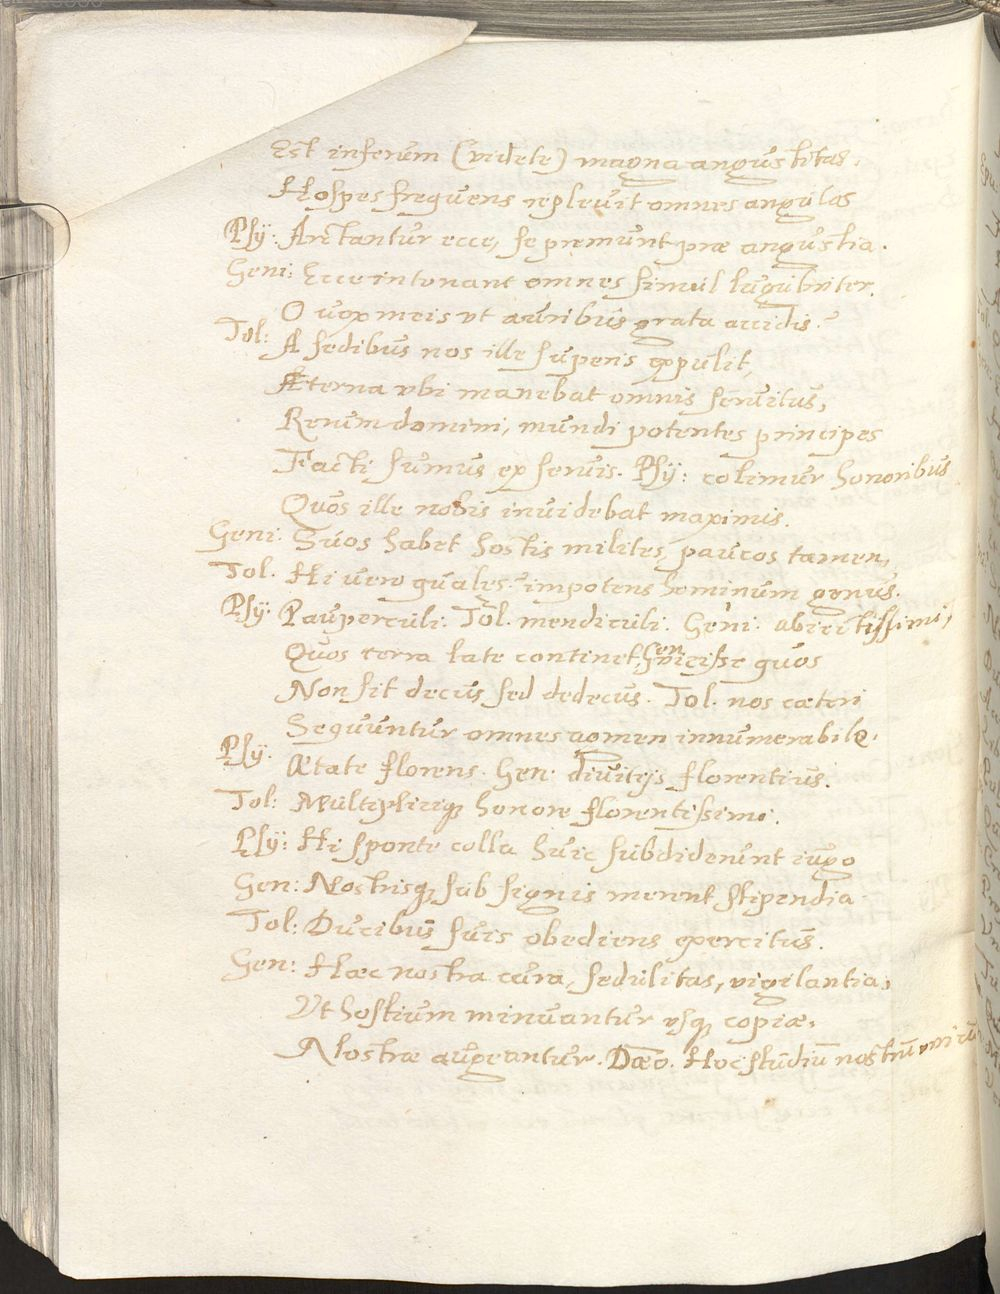 Est inferum (videte) magna angustitas.
Hospes frequens replevit omnes angulos
Psÿ: Arctantur ecce, se premunt præ angustia.
Geni: Ecce intonant omnes simul lugubriter.
O vox meis ut auribus grata accidis.
Tol: A sedibus nos ille superis expulit,
Æterna vbi manebat omnis servitus,
Rerum domini, mundi potentes principes
Facti sumus ex servis. Psÿ: colimur honoribus
Quos ille nobis invidebat maximis.
Geni: Suos habet hostis milites, paucos tamen,
Tol. Hi vero quales? impotens hominum genus.
Psÿ: Pauperculi. Tol. mendiculi. Geni: abiectissimi,
Quos terra late continet, Gen: vicisse quos
Non sit decus sed dedecus. Tol. nos cæteri
Sequuntur omnes agmen innumerabile.
Psÿ. Ætate florens. Gen: divitijs florentius.
Tol: Multiplicique honore florentissimi.
Psÿ: Hi sponte colla huic subdiderunt iugo
Gen: Nostrisque sub signis merent stipendia
Tol: Ducibus suis obediens exercitus.
Gen: Hæc nostra cura, sedulitas, vigilantia,
Ut hostium minuantur vsque copiæ,
Nostræ augeantur. Dæo. Hoc studiū nostrū vnicū